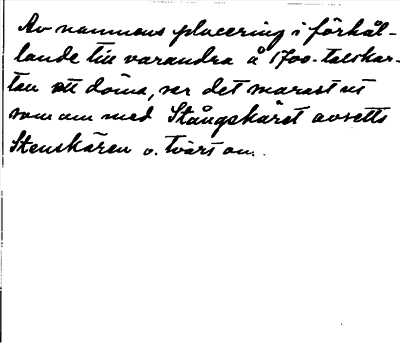 Av namnens placering i förhål-
lande till varandra å 1700-talskar-
tan att döma, ser det närmast ut
som om med Stångskäret avsetts
Stenskären o. tvärt om.